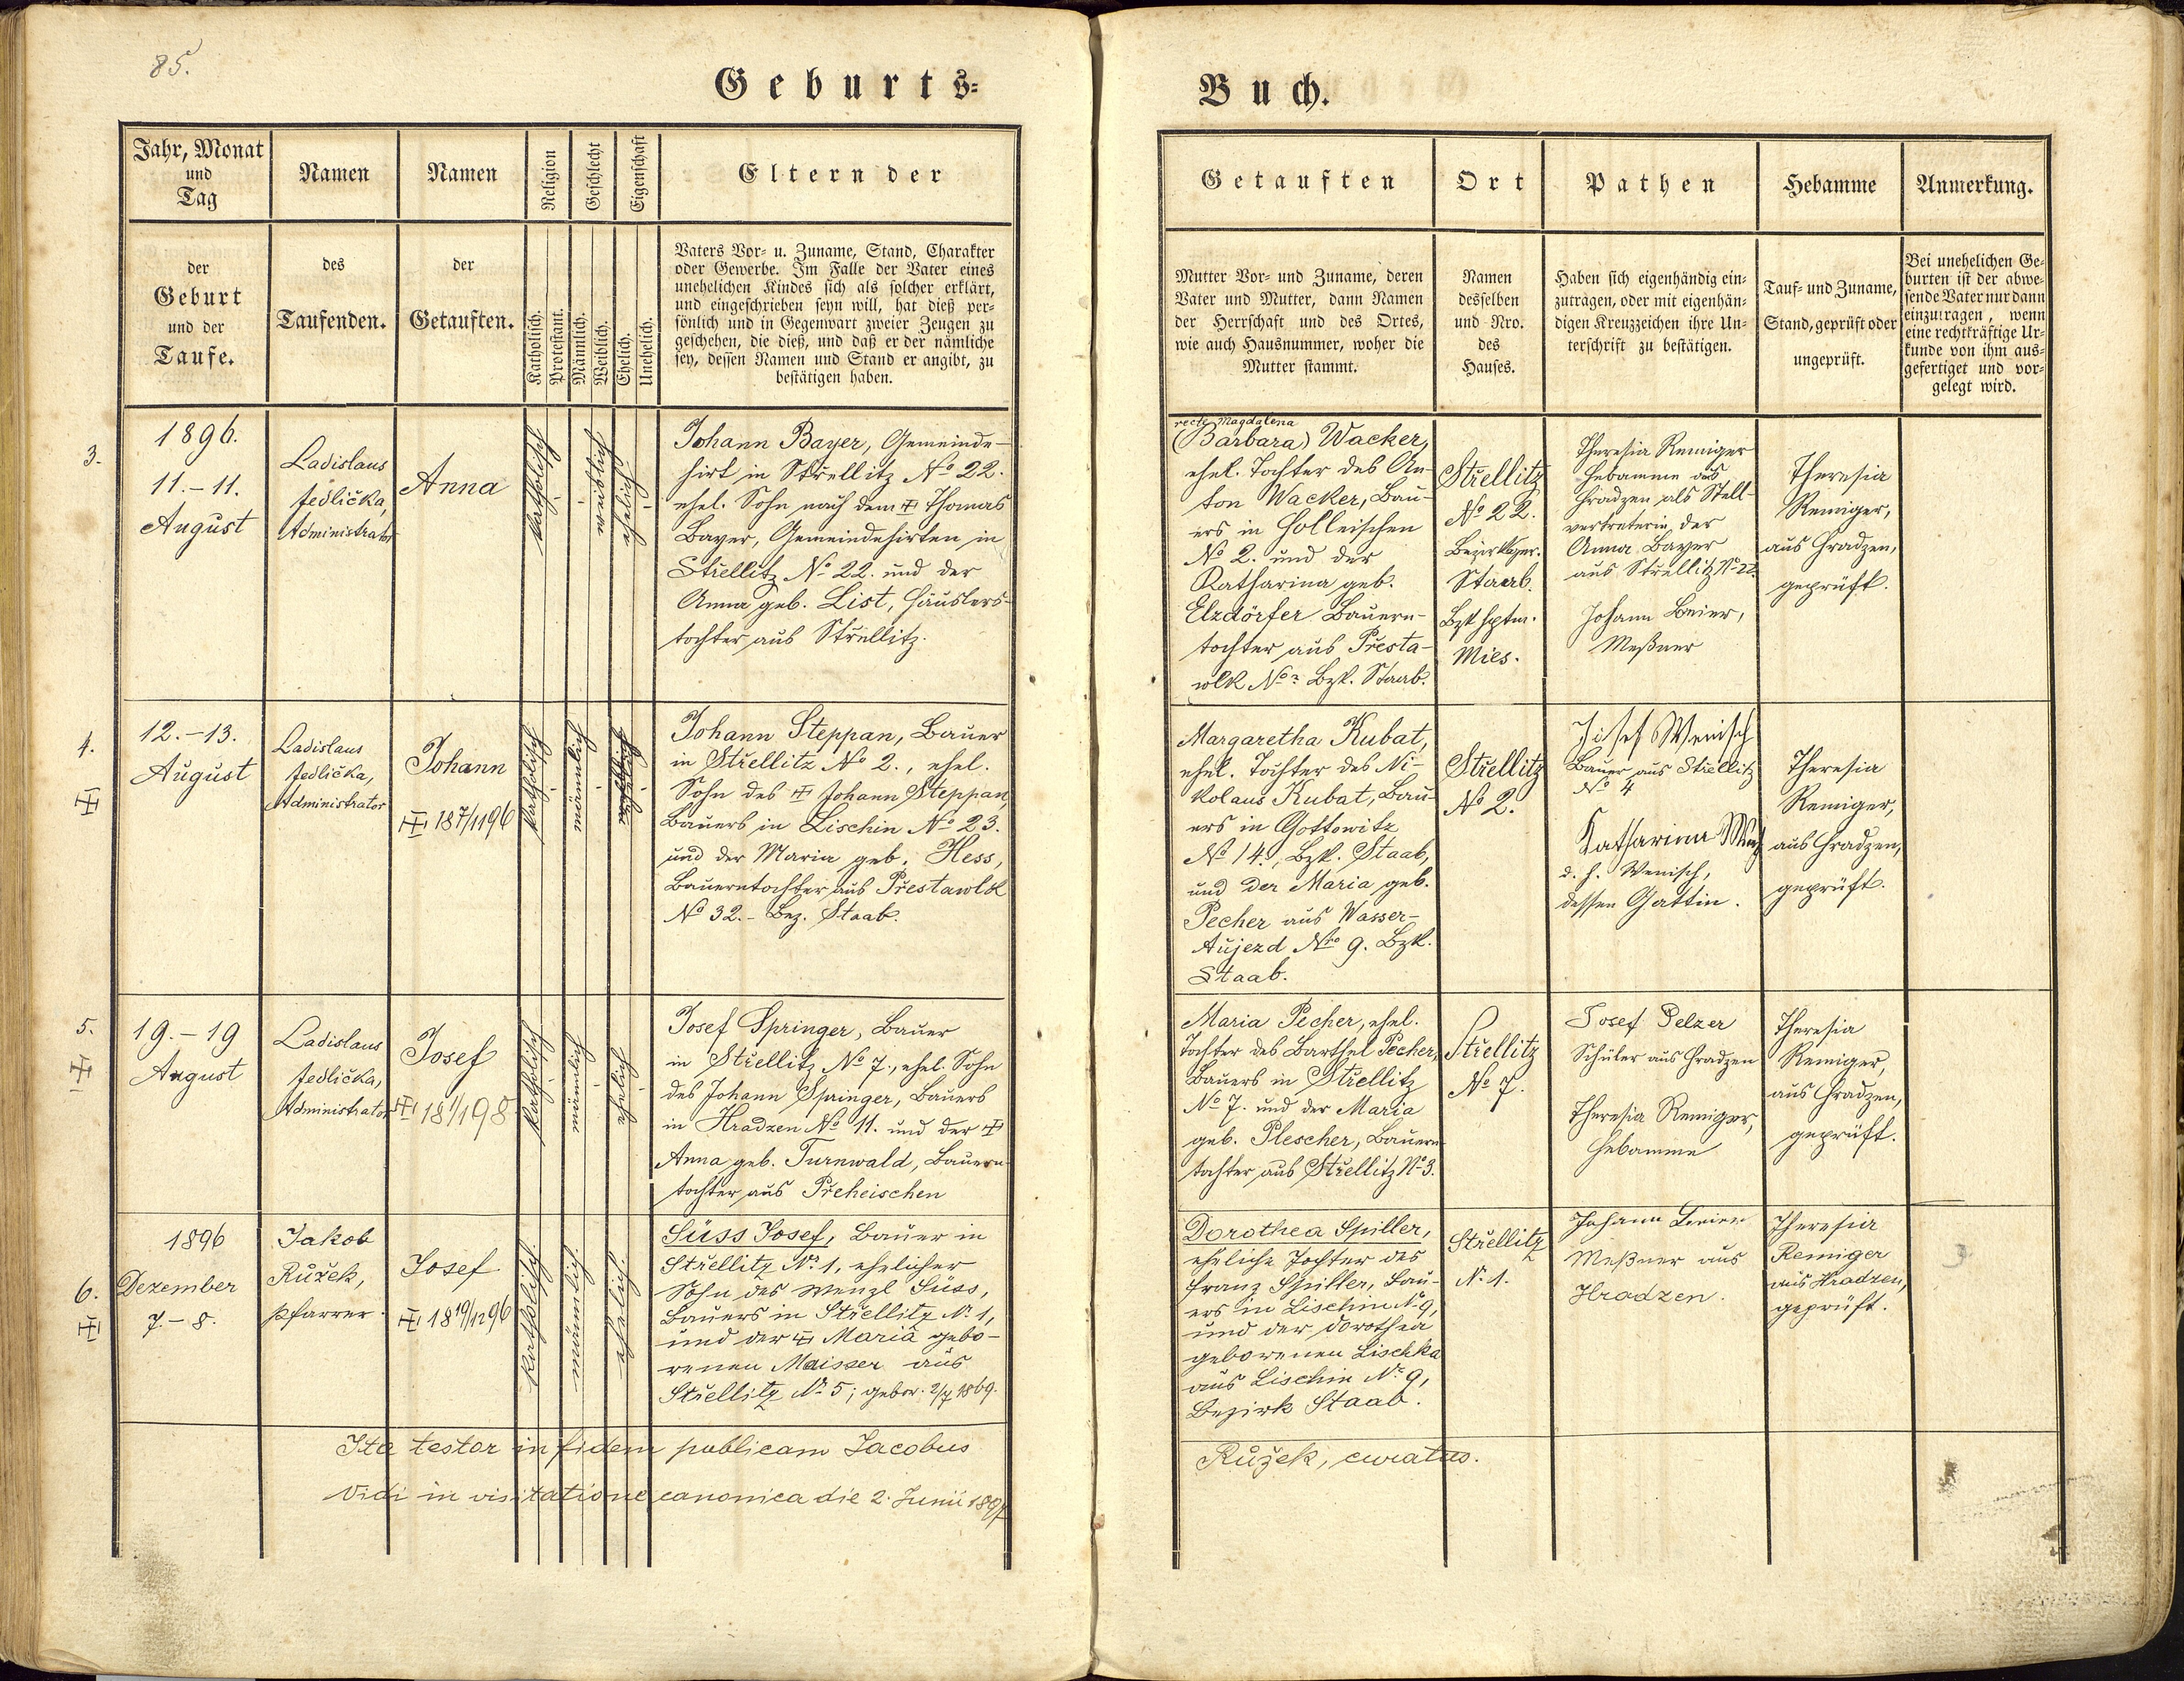 85.
Geburts-
Jahr, Monat
und
Tag
Namen
Namen
Religion
Geschlecht
Eigenschaft
Eltern der
der
Geburt
und der
Taufe.
des
Taufenden.
der
Getauften.
Katholisch.
Protestant.
Männlich.
Weiblich.
Ehelich.
Unehelich.
Vaters Vor- u. Zuname, Stand, Charakter
oder Gewerbe. Im Falle der Vater eines
unehelichen Kindes sich als solcher erklärt,
und eingeschrieben seyn will, hat dieß per-
sönlich und in Gegenwart zweier Zeugen zu
geschehen, die dieß, und daß er der nämliche
sey, dessen Namen und Stand er angibt, zu
bestätigen haben.
3.
1896.
11.-11.
August
Ladislaus
Jedlička,
Administrator
Anna
katholisch
weiblich
ehelich
Johann Bayer, Gemeinde-
hirt in Střellitz No 22.
ehel. Sohn nach dem ✠ Thomas
Bayer, Gemeindehirten in
Střellitz No 22. und der
Anna geb. List, Häuslers-
tochter aus Střellitz.
4.
✠
12.-13.
August
Ladislaus
Jedlička,
Administrator
Johann
✠ 18 7/11 96
katholisch
männlich
ehelich
Johann Steppan, Bauer
in Střellitz No 2., ehel.
Sohn des ✠ Johann Steppan,
Bauers in Lischin No 23.
und der Maria geb. Hess,
Bauerntochter aus Přestawlk
No 32.- Bez. Staab.
5.
✠
19.-19
August
Ladislaus
Jedlička,
Administrator
Josef
✠ 18 1/1 98
katholisch
männlich
ehelich
Josef Springer, Bauer
in Střellitz No 7., ehel. Sohn
des Johann Springer, Bauers
in Hradzen No 11. und der ✠
Anna geb. Turnwald, Bauern-
tochter aus Přeheischen
6.
✠
1896
Dezember
7.-8.
Jakob
Růžek,
Pfarrer.
Josef
✠ 18 19/12 96
katholisch
männlich
ehelich
Süss Josef, Bauer in
Střellitz No 1, ehelicher
Sohn des Wenzl Süss,
Bauers in Střellitz No 1,
und der ✠ Maria gebo-
renen Maisser aus
Střellitz No 5; gebor. 2/7 1869.
Ita testor in fidem publicam Jacobus
Vidi in visitatione canonica die 2. Junii 1897
Buch.
Getauften
Ort
Pathen
Hebamme
Anmerkung.
Mutter Vor- und Zuname, deren
Vater und Mutter, dann Namen
der Herrschaft und des Ortes,
wie auch Hausnummer, woher die
Mutter stammt.
Namen
desselben
und Nro.
des
Hauses.
Haben sich eigenhändig ein-
zutragen, oder mit eigenhän-
digen Kreuzzeichen ihre Un-
terschrift zu bestätigen.
Tauf- und Zuname,
Stand, geprüft oder
ungeprüft.
Bei unehelichen Ge-
burten ist der abwe-
sende Vater nur dann
einzutragen, wenn
eine rechtkräftige Ur-
kunde von ihm aus-
gefertiget und vor-
gelegt wird.
recte Magdalena
(Barbara) Wacker,
ehel. Tochter des An-
ton Wacker, Bau-
ers in Holleischen
No 2. und der
Katharina geb.
Elzdörfer Bauern-
tochter aus Přesta-
wlk No ? Bzk. Staab.
Střellitz
No 22.
Bezirksger.
Staab.
Bzkhptm.
Mies.
Theresia Remiger
Hebamme aus
Hradzen als Stell-
vertreterin der
Anna Bayer
aus Střellitz No 22.
Johann Beier,
Meßner
Theresia
Remiger,
aus Hradzen,
geprüft.
Margaretha Kubat,
ehel. Tochter des Ni-
kolaus Kubat, Bau-
ers in Gottowitz
No 14., Bzk. Staab,
und der Maria geb.
Pecher aus Wasser-
Aujezd No 9. Bzk.
Staab.
Střellitz
No 2.
Josef Wenisch
Bauer aus Střellitz
No 4
Katharina
d. h. Wenisch,
dessen Gattin.
Theresia
Remiger,
aus Hradzen,
geprüft.
Maria Pecher, ehel.
Tochter des Barthel Pecher,
Bauers in Střellitz
No 7. und der Maria
geb. Plescher, Bauern-
tochter aus Střellitz No 3.
Střellitz
No 7.
Josef Pelzer
Schüler aus Hradzen
Theresia Remiger,
Hebamme
Theresia
Remiger,
aus Hradzen,
geprüft.
Dorothea Spiller,
eheliche Tochter des
Franz Spiller, Bau-
ers in Lischin No 9,
und der Dorothea
geborenen Lischka
aus Lischin No 9,
Bezirk Staab.
Střellitz
No 1.
Johann Beier
Meßner aus
Hradzen.
Theresia
Remiger
aus Hradzen,
geprüft.
3
Růžek, curatus.